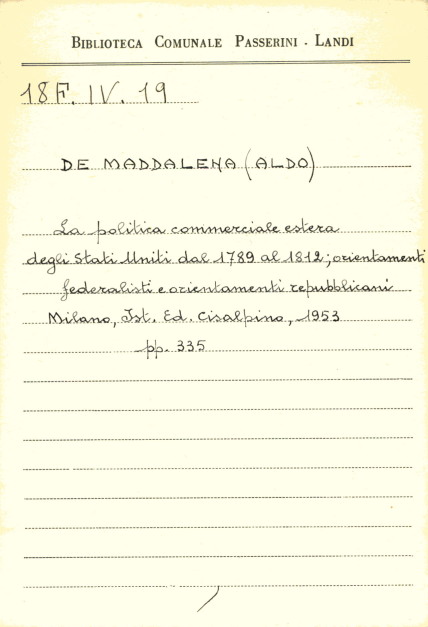 BIBLIOTECA COMUNALE PASSERINI - LANDI
18 F. IV. 19
DE MADDALENA (ALDO)
La politica commerciale estera
degli Stati Uniti dal 1789 al 1812; orientamenti
federalisti e orientamenti repubblicani
Milano, Ist. Ed. Cisalpino, 1953
pp. 335